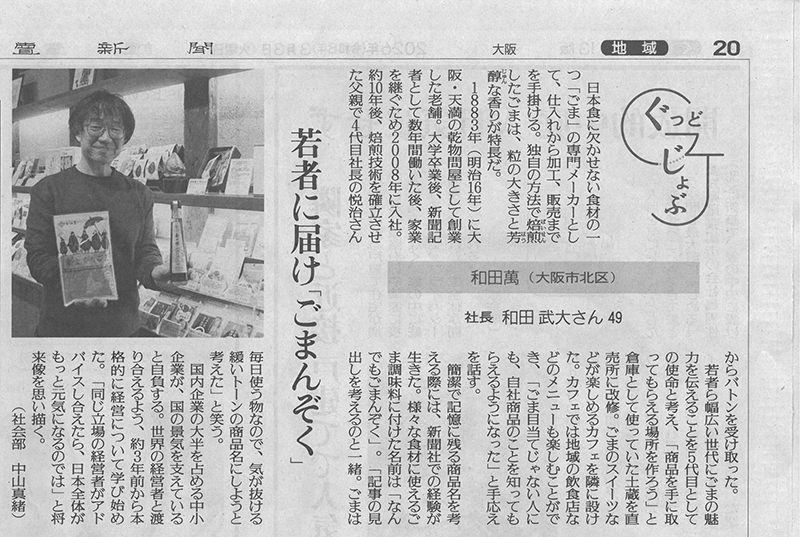 読 新 聞
大阪
地域
20
ぐっどじょぶ
日本食に欠かせない食材の一
つ「ごま」の専門メーカーとし
て、仕入れから加工、販売まで
を手掛ける。独自の方法で焙煎
したごまは、粒の大きさと芳
醇な香りが特長だ。
1883年(明治16年)に大
阪・天満の乾物問屋として創業
した老舗。大学卒業後、新聞記
者として数年間働いた後、家業
を継ぐため2008年に入社。
約10年後、焙煎技術を確立させ
た父親で4代目社長の悦治さん
若者に届け「ごまんぞく」
和田萬(大阪市北区)
社長 和田 武大さん 49
からバトンを受け取った。
若者ら幅広い世代にごまの魅
力を伝えることを5代目として
の使命と考え、「商品を手に取
ってもらえる場所を作ろう」と
倉庫として使っていた土蔵を直
売所に改修。ごまのスイーツな
どが楽しめるカフェを隣に設け
た。カフェでは地域の飲食店な
どのメニューも楽しむことがで
き、「ごま目当てじゃない人に
も、自社商品のことを知っても
らえるようになった」と手応え
を話す。
簡潔で記憶に残る商品名を考
える際には、新聞社での経験が
生きた。様々な食材に使えるご
ま調味料に付けた名前は「なん
でもごまんぞく」。「記事の見
出しを考えるのと一緒。ごまは
毎日使う物なので、気が抜ける
緩いトーンの商品名にしようと
考えた」と笑う。
国内企業の大半を占める中小
企業が、国の景気を支えている
と自負する。世界の経営者と渡
り合えるよう、約3年前から本
格的に経営について学び始め
た。「同じ立場の経営者がアド
バイスし合えたら、日本全体が
もっと元気になるのでは」と将
来像を思い描く。
(社会部 中山真緒)